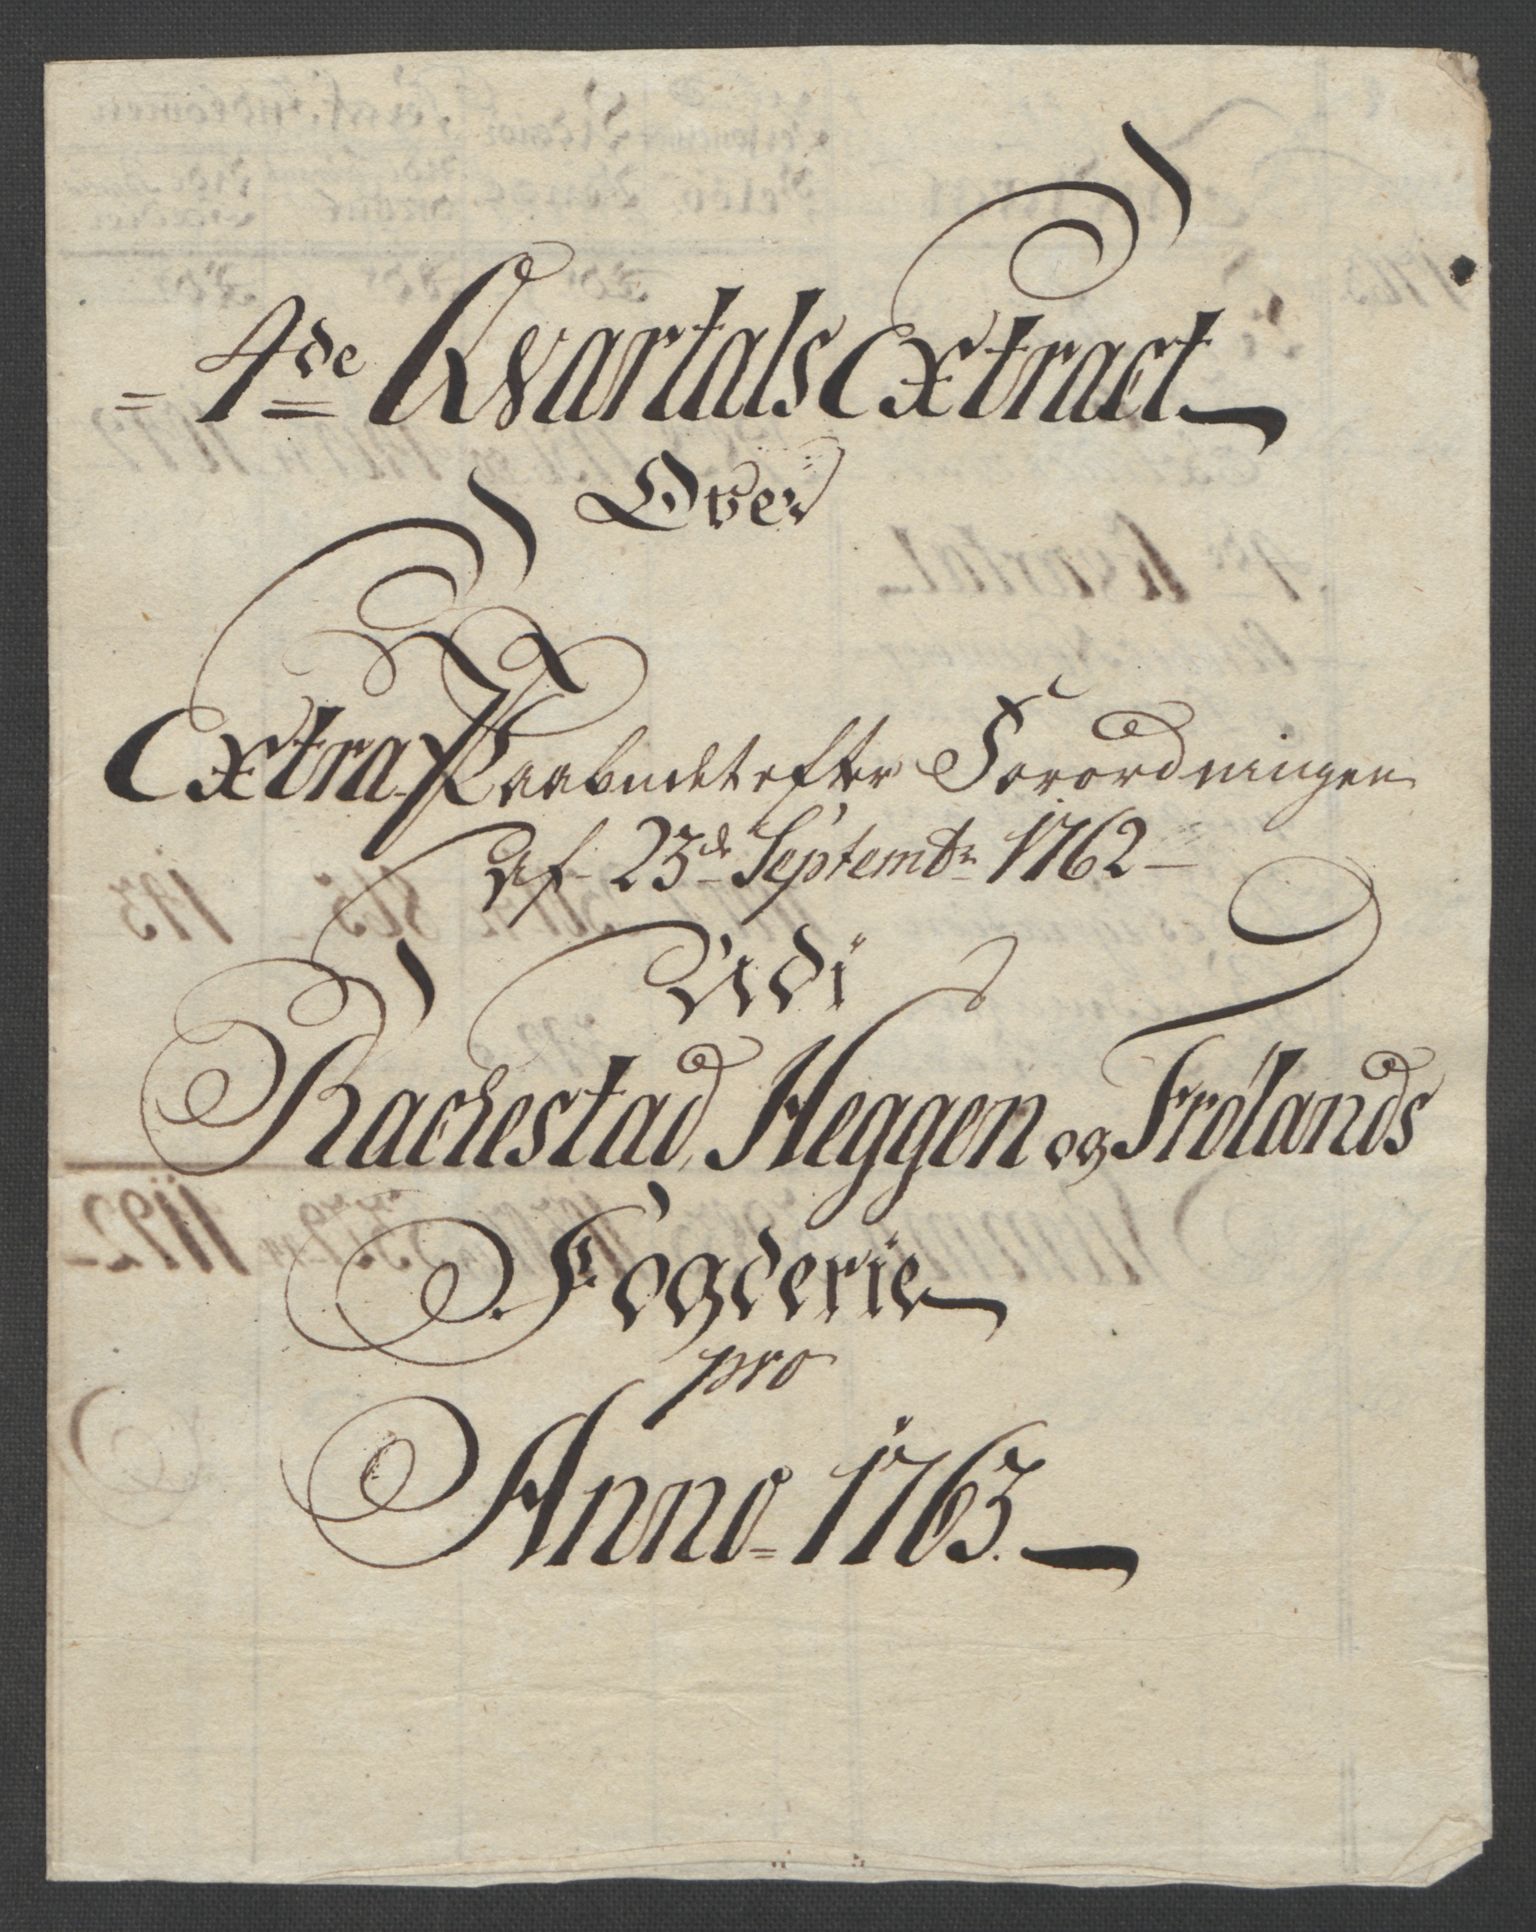 = 4de Kvartals Extract
Over
Extra-Paabudet efter Forordningen
af 23de Septembr 1762
Udi
Rachestad, Heggen og Frølands
Fogderie
pro
Anno = 1763.